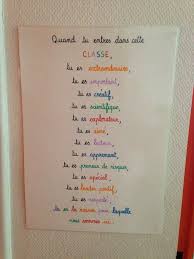 Quand tu entres dans cette
CLASSE,
tu es extraordinaire,
tu es important,
tu es créatif,
tu es scientifique,
tu es explorateur,
tu es aimé,
tu es lecteur,
tu es apprenant,
tu es preneur de risques,
tu es spécial,
tu es leader positif,
tu es respecté,
tu es la raison pour laquelle
nous sommes ici.